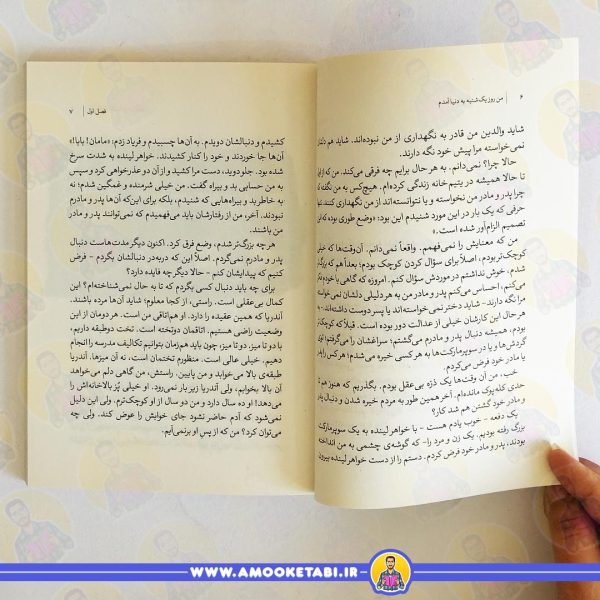 ۶
من روز یک‌شنبه به دنیا آمدم
شاید والدین من قادر به نگهداری از من نبوده‌اند. شاید هم
نمی‌خواسته مرا پیش خود نگه دارند.
حالا چرا؟ نمی‌دانم. به هر حال برایم چه فرقی می‌کند. من که از
تا حالا همیشه در یتیم خانه زندگی کرده‌ام. هیچ‌کس به من نگفته که
چرا پدر و مادر من نخواسته و یا نتوانسته‌اند از من نگهداری کنند.
حرفی که یک بار در این مورد شنیدم این بود: «وضع طوری بوده که
تصمیم الزام‌آور شده است.»
من که معنایش را نمی‌فهمم. واقعاً نمی‌دانم. آن‌وقت‌ها که خیلی
کوچک‌تر بودم، اصلاً برای سؤال کردن کوچک بودم؛ بعداً هم که بزرگ‌تر
شدم، خوش نداشتم در موردش سؤال کنم. امروزه که گاهی به
می‌کنم، احساس می‌کنم پدر و مادر من به هر دلیلی دلشان نخواسته
مرا نگه دارند - شاید دختر نمی‌خواسته‌اند یا پسر دوست داشته‌اند - به
هر حال این کارشان خیلی از عدالت دور بوده است. قبلاً که کوچک‌تر
بودم، همیشه دنبال پدر و مادرم می‌گشتم؛ سراغشان را می‌گرفتم. در
گردش‌ها و یا در سوپرمارکت‌ها به هر کسی خیره می‌شدم؛ هر کس را پدر
یا مادر خود فرض می‌کردم.
خب، من آن وقت‌ها یک ذره بی‌عقل بودم. بگذریم که هنوز هم تا
حدی کله‌پوک مانده‌ام. آخر همین طور به مردم خیره شدن و دنبال پدر
و مادر خود گشتن هم شد کار؟
یک دفعه - خوب یادم هست - با خواهر لینده به یک سوپرمارکت
بزرگ رفته بودیم. یک زن و مرد را - که گوشه‌ی چشمی به من انداخته
بودند، پدر و مادر خود فرض کردم. دستم را از دست خواهر لینده بیرون
فصل اول
۷
کشیدم و دنبالشان دویدم. به آن‌ها چسبیدم و فریاد زدم: «مامان! بابا!»
آن‌ها جا خوردند و خود را کنار کشیدند. خواهر لینده به شدت سرخ
شده بود. جلو دوید، دست مرا کشید و از آن دو عذرخواهی کرد و سپس
به من حسابی بد و بیراه گفت. من خیلی شرمنده و غمگین شدم؛ نه
به خاطر بد و بیراه‌هایی که شنیدم، بلکه برای این‌که آن‌ها پدر و مادرم
نبودند. آخر، من از رفتارشان باید می‌فهمیدم که نمی‌توانند پدر و مادر
من باشند.
هر چه بزرگ‌تر شدم، وضع فرق کرد. اکنون دیگر مدت‌هاست دنبال
پدر و مادرم نمی‌گردم. اصلاً این که دربه‌در دنبالشان بگردم - فرض
کنیم که پیدایشان کنم - حالا دیگر چه فایده دارد؟
برای چه باید دنبال کسی بگردم که تا به حال نمی‌شناخته‌ام؟ این
کمال بی‌عقلی است. راستی، از کجا معلوم؛ شاید آن‌ها مرده باشند.
آندریا هم همین عقیده را دارد. او هم‌اتاقی من است. هر دومان از این
وضعیت راضی هستیم. اتاقمان دوتخته است. تخت دوطبقه داریم،
با دو تا میز. دو تا میز، چون باید هم‌زمان بتوانیم تکالیف مدرسه را انجام
دهیم. خیلی عالی است. منظورم تختمان است، نه آن میزها. آندریا
طبقه‌ی بالا می‌خوابد و من پایین. راستش، من گاهی دلم می‌خواهد
آن بالا بخوابم، ولی آندریا زیر بار نمی‌رود. او خیلی پُز بالاخانه‌اش را
می‌دهد! او ده سال دارد و من دو سال از او کوچک‌ترم. ولی این دلیل
نمی‌شود که آدم حاضر نشود جای خوابش را عوض کند. ولی چه
می‌توان کرد؟ من که از پس او برنمی‌آیم.
WWW.AMOOKETABI.IR